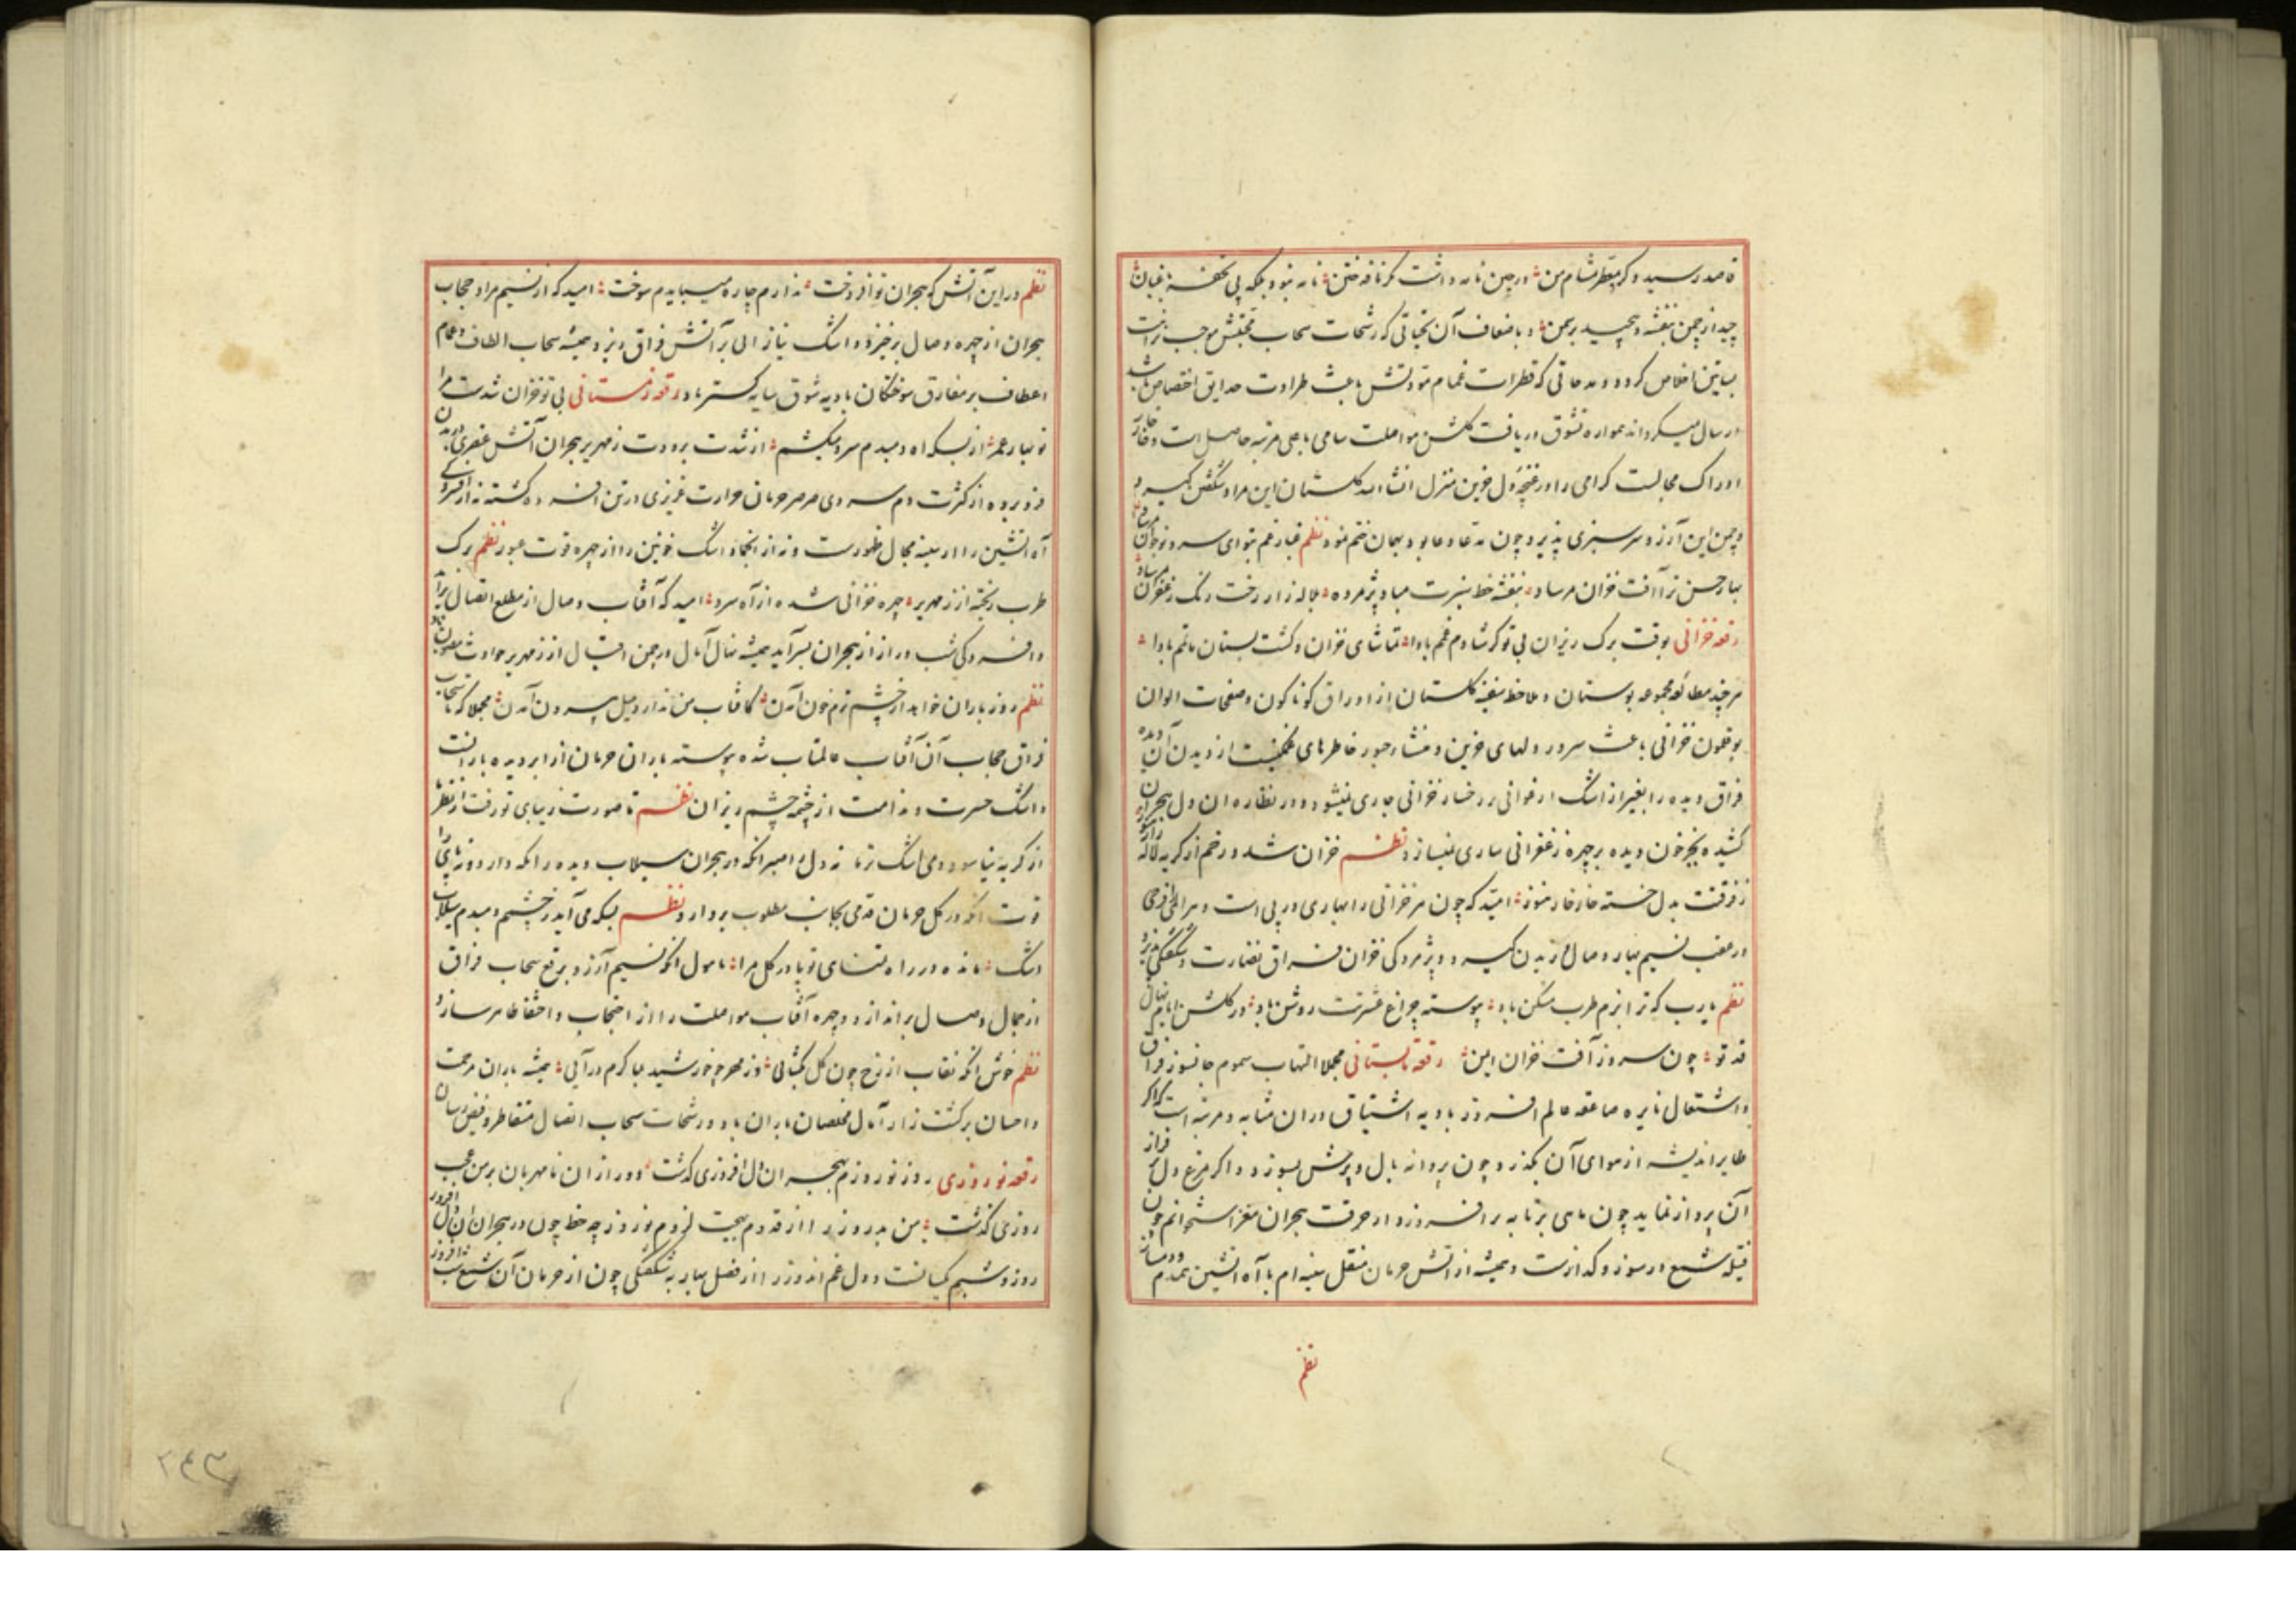 قاصد رسید و کرد معطر مشام من در چین نامه داشت کر نافه ختن نامه نبود بلکه پی تحفه باغبان
چید از چمن بنفشه و پیچید بر سمن و باضعاف آن تحیاتی که رشحات سحاب محبتش موجب نزاهت
بساتین اخلاص کردد و مدحاتی که قطرات غمام مودتش باعث طراوت حدایق اختصاص باشد
ارسال میکرداند همواره تشوق دریافت کلشن مواصلت سامی باعلی مرتبه حاصل است و خار خار
ادراک مجالست کرامی را در غنچه دل حزین منزل انشاءالله کلستان این مراد شکفتن کیرد
و چمن این آرزو سرسبزی پذیرد چون مدعا دعا بود بهمان ختم نمود نظم غبار غم بتو ای سرو نوجوان مرساد
بهار حسن ترا آفت خزان مرساد بنفشه خط سبزت مباد پژمرده بلاله زار رخت رنگ زعفران مرساد
رقعه خزانی بوقت برک ریزان بی تو کر شادم غمم بادا تماشای خزان و کشت بستان ماتمم بادا
هر چند مطالعه مجموعه بوستان و ملاحظه سفینه کلستان از اوراق کوناکون و صفحات الوان
بوقلمون خزانی باعث سرور دلهای حزین و منشاء حبور خاطرهای غمکین است از دیدن آن دیده
فراق دیده را بغیر از اشک ارغوانی بر رخسار خزانی جاری نمیشود و در نظاره آن دل هجران
کشیده بجز خون دیده بر چهره زعفرانی ساری نمیسازد نظم خزان شد و رخم از کریه لاله زار هنوز
ز فرقتت بدل خسته خار خار هنوز امید که چون هر خزانی را بهاری در پی است و هر المی را فرحی
در عقب نسیم بهار وصال وزیدن کیرد و پژمردکی خزان فراق نضارت و شکفتکی پذیرد
نظم یارب که ترا بزم طرب مسکن باد پیوسته چراغ عشرتت روشن باد در کلشن ایام نهال
قد تو چون سرو ز آفت خزان ایمن رقعه تابستانی مجملا التهاب سموم جانسوز فراق
و اشتعال نایره صاعقه عالم افروز بادیه اشتیاق در آن مثابه و مرتبه است که اکر
طایر اندیشه از هوای آن بکذرد چون پروانه بال و پرش بسوزد و اکر مرغ دل بر فراز
آن پرواز نماید چون ماهی بر تابه برافروزد از حرقت هجران مغز استخوانم چون
فتیله شمع در سوز و کداز است و همیشه از آتش حرمان منقل سینه ام با آه آتشین همدم و دمساز
نظم
نظم در این آتش که هجران تو افروخت ندارم چاره میبایدم سوخت امید که از نسیم مراد حجاب
هجران از چهره وصال برخیزد و اشک نیاز آبی بر آتش فراق ریزد همیشه سحاب الطاف و غمام
اعطاف بر مفارق سوختکان بادیه شوق سایه کستر باد رقعه زمستانی بی تو خزان شدست مرا
نوبهار عمر از بسکه آه دمبدم سرد میکشم از شدت برودت زمهریر هجران آتش عنصری در بدن
فرو برده از کثرت دم سردی صرصر حرمان حرارت غریزی در تن افسرده کشته نه از افسردکی
آه آتشین را از سینه مجال ظهور است و نه از انجماد اشک خونین را از چهره قوت عبور نظم برک
طرب ریخته از زمهریر چهره خزانی شده از آه سرد امید که آفتاب وصال از مطلع اتصال برآید
و افسردکی شب دراز از هجران بسرآید همیشه نهال آمال در چمن اقبال از زمهریر حوادث مصون باد
نظم روز باران خواهد از چشم ترم خون آمدن کافتاب من ندارد میل بیرون آمدن مجملا که تا سحاب
فراق حجاب آن آفتاب عالمتاب شده پیوسته باران حرمان از ابر دیده بارانست
و اشک حسرت و ندامت از چشمه چشم ریزان نظم تا صورت زیبای تو رفت از نظر ما
از کریه نیاسود دمی اشک تر ما نه دل را صبر آنکه در هجران سیلاب دیده را نکه دارد و نه پای را
قوت آنکه در کل حرمان قدمی بجانب مطلوب بردارد نظم بسکه می آید ز چشمم دمبدم سیلاب
اشک مانده در راه تمنای تو پا در کل مرا مامول آنکه نسیم آرزو برقع سحاب فراق
از جمال وصال براندازد و چهره آفتاب مواصلت را از احتجاب و اختفا ظاهر سازد
نظم خوش آنکه نقاب از رخ چون کل بکشائی وز مهر چو خورشید بما کرم درآیی همیشه باران مرحمت
و احسان بر کشت زار آمال مخلصان باران باد و رشحات سحاب اتصال متقاطر و فیض رسان
رقعه نوروزی روز نوروزم بهجران دل افروزی کذشت دور از آن نامهربان بر من عجب
روزی کذشت من بد روز را از قدوم بهجت لزوم نوروز چه حظ چون در هجران آن دل افروز
روز و شبم یکسانست و دل غم اندوز را از فصل بهار چه شکفتکی چون از حرمان آن شمع شب افروز
۲۴۳